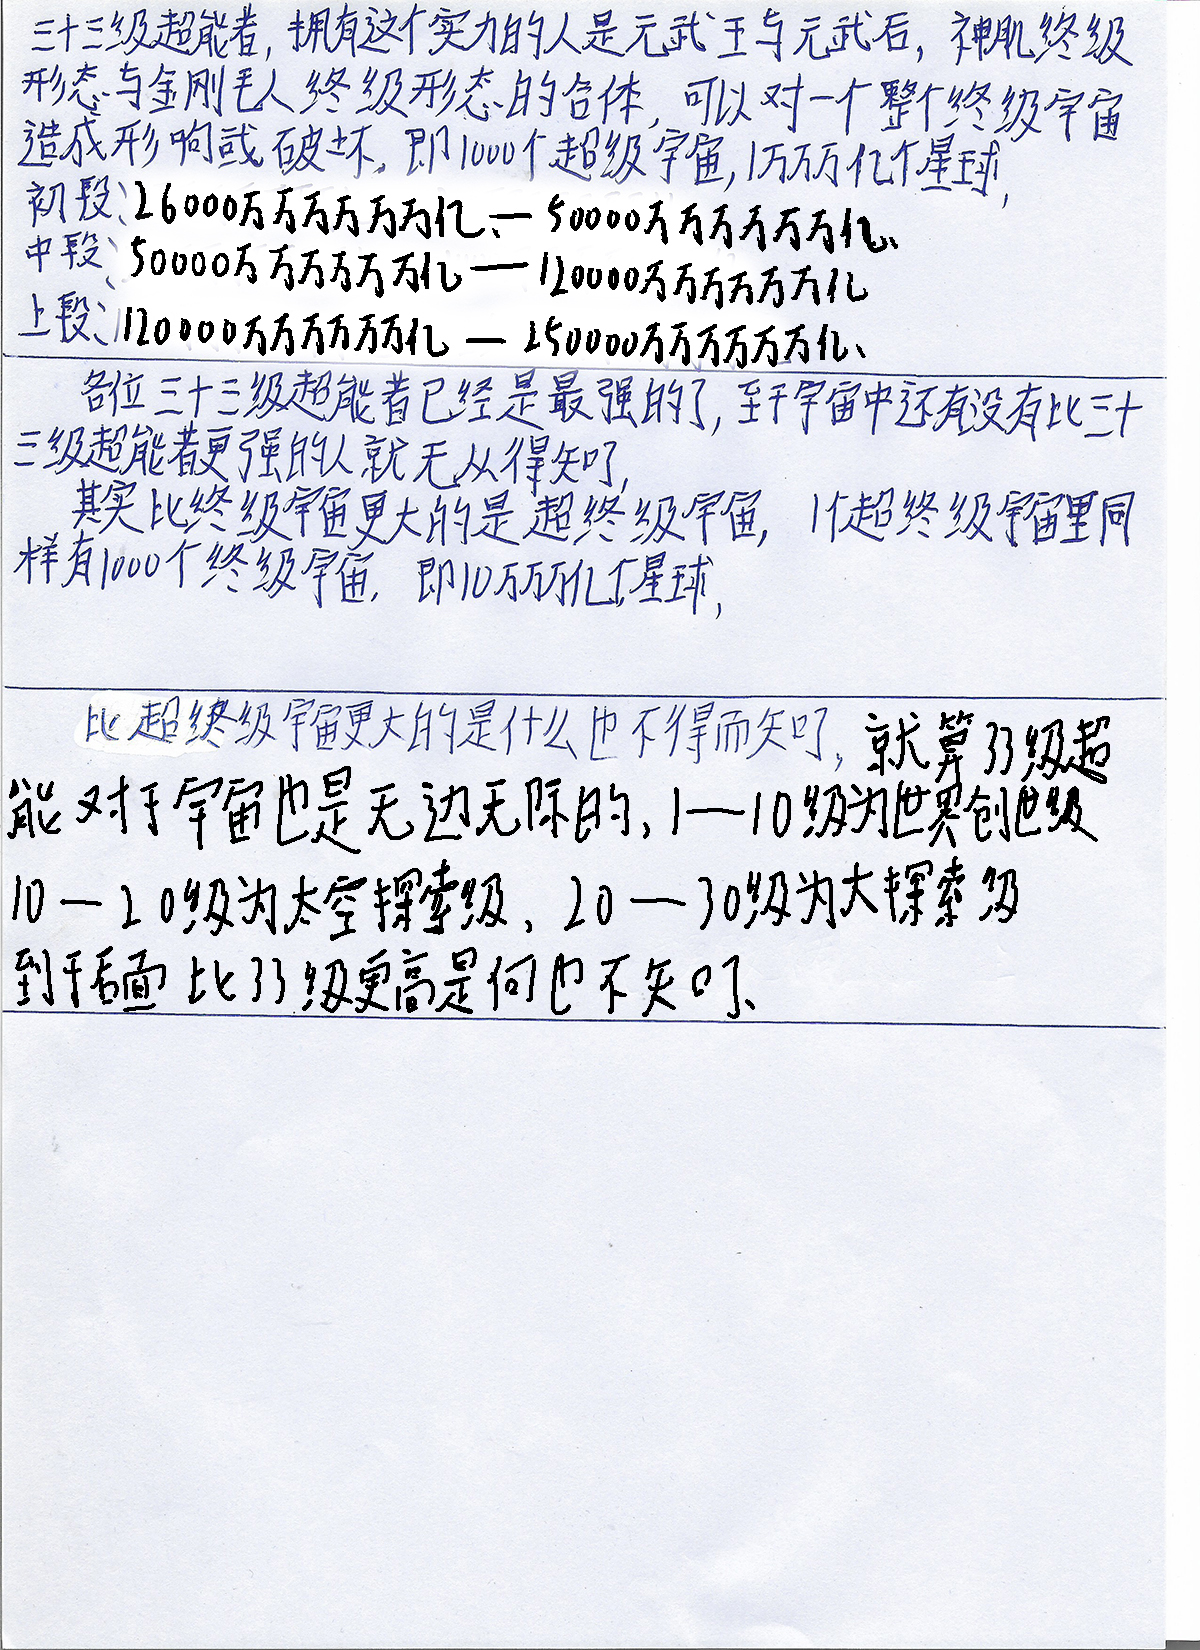 三十三级超能者,拥有这个实力的人是元武王与元武后,神肌终级
形态与金刚毛人终级形态的合体,可以对一个整个终级宇宙
造成形响或破坏,即1000个超级宇宙,1万万万亿个星球,
初段:26000万万万万万万亿、— 50000万万万万万万亿、
中段:50000万万万万万万亿 — 120000万万万万万万亿
上段:120000万万万万万万亿 — 250000万万万万万万亿、
各位三十三级超能者已经是最强的了,至于宇宙中还有没有比三十
三级超能者更强的人就无从得知了,
其实比终级宇宙更大的是超终级宇宙,1个超终级宇宙里同
样有1000个终级宇宙,即10万万万亿个星球,
比超终级宇宙更大的是什么也不得而知了,就算33级超
能对于宇宙也是无边无际的,1—10级为世界创世级
10—20级为太空探索级,20—30级为大探索级
到于后面比33级更高是何也不知了、